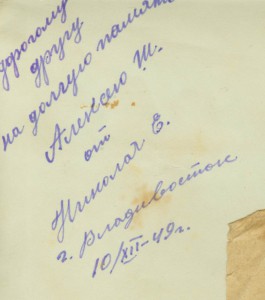 дорогому
другу
на долгую память
Алексею Ш.
от
Николая Е.
г. Владивосток
10/XII-49г.